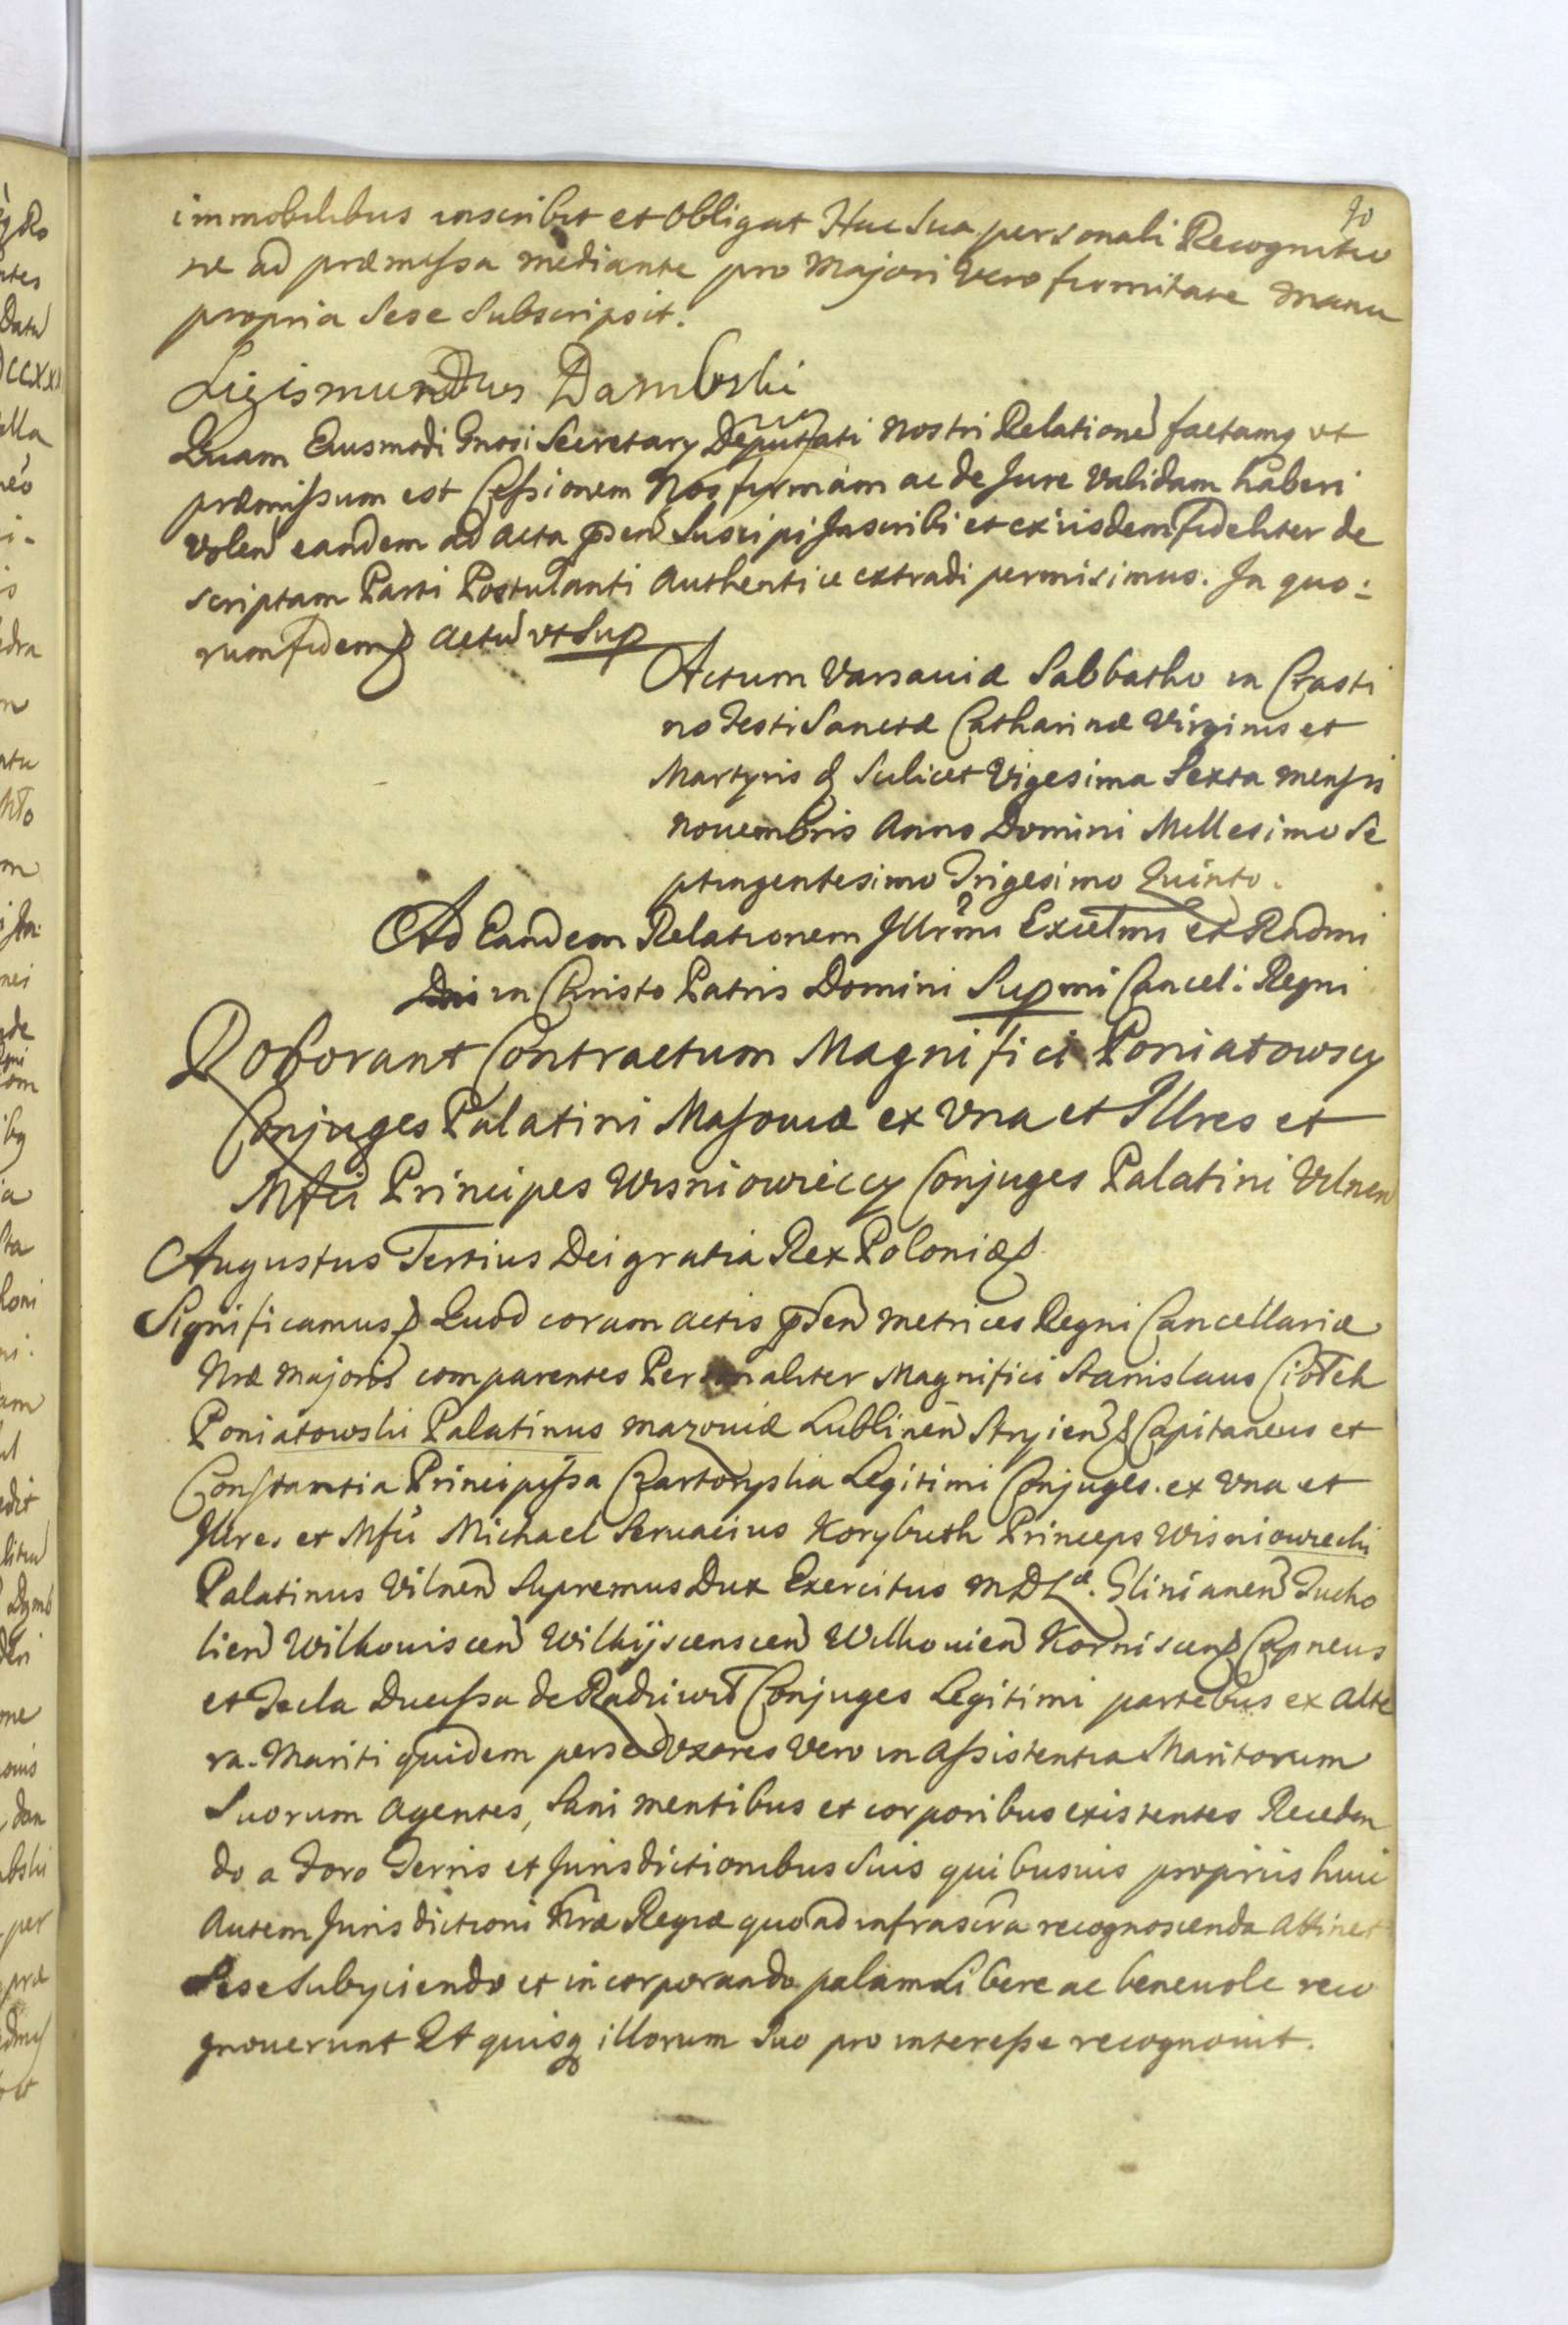 90
immobilibus inscribit et obligat Hac Sua personali Recognitio
ne ad præmissa mediante pro Majori Vero firmitate manu
propria Sese Subscripsit.
Sigismundus Dambski
Quam Eiusmodi Gnosi Secretary Deputati Nostri Relatione factamq vt
præmissum est Cessionem Nos firmam ac de Jure Validam haberi
Volen eandem ad acta pden Suscipi Inscribi et ex iisdem fideliter de
scriptam Parti Postulanti Authentice extradi permisimus. In quo:
rum fidem Actu vt Sup
Actum Varsaviæ Sabbatho in Crasti
no Festi Sanctæ Catharinæ Virginis et
Martyris Scilicet Vigesima Sexta mensis
Nouembris Anno Domini Millesimo Se
ptingentesimo Trigesimo Quinto.
Ad Eandem Relationem Illrmi Exclmi et Rndmi
in Christo Patris Domini Supmi Cancel: Regni
Roborant Contractum Magnifici Poniatowscy
Conjuges Palatini Masouiæ ex Vna et Illres et
Mfci Principes Wisniowieccy Conjuges Palatini Vilnen
Augustus Tertius Dei gratia Rex Poloniæ
Significamus Quod coram actis pden metrices Regni Cancellariæ
Nræ Majoris comparentes Personaliter Magnifici Stanislaus Ciołek
Poniatowski Palatinus mazouiæ Lublinen Stryien Capitaneus et
Constantia Principissa Czartoryska Legitimi Conjuges. ex Vna et
Illres et Mfci Michael Seruacius Korybuth Princeps Wisniowiecki
Palatinus Vilnen Supremus Dux Exercitus M D L. Glinianen Tucho
lien Wilkouiscen Wilkijscenscen Wilkouien Korniscen Capneus
et Tecla Ducissa de Radziwił Conjuges Legitimi partibus ex Alte
ra. Mariti quidem per se Vxores Vero in Assistentia Maritorum
Suorum Agentes, Sani mentibus et corporibus existentes Receden
do a Foro Terris et Jurisdictionibus Suis quibusuis proprijs huic
Autem Jurisdictioni Nræ Regiæ quo ad infrascra recognoscenda Attinet
Sese Subyciendo et incorporando palam Libere ac beneuole reco
gnouerunt Et quisq illorum Suo pro interesse recognouit.